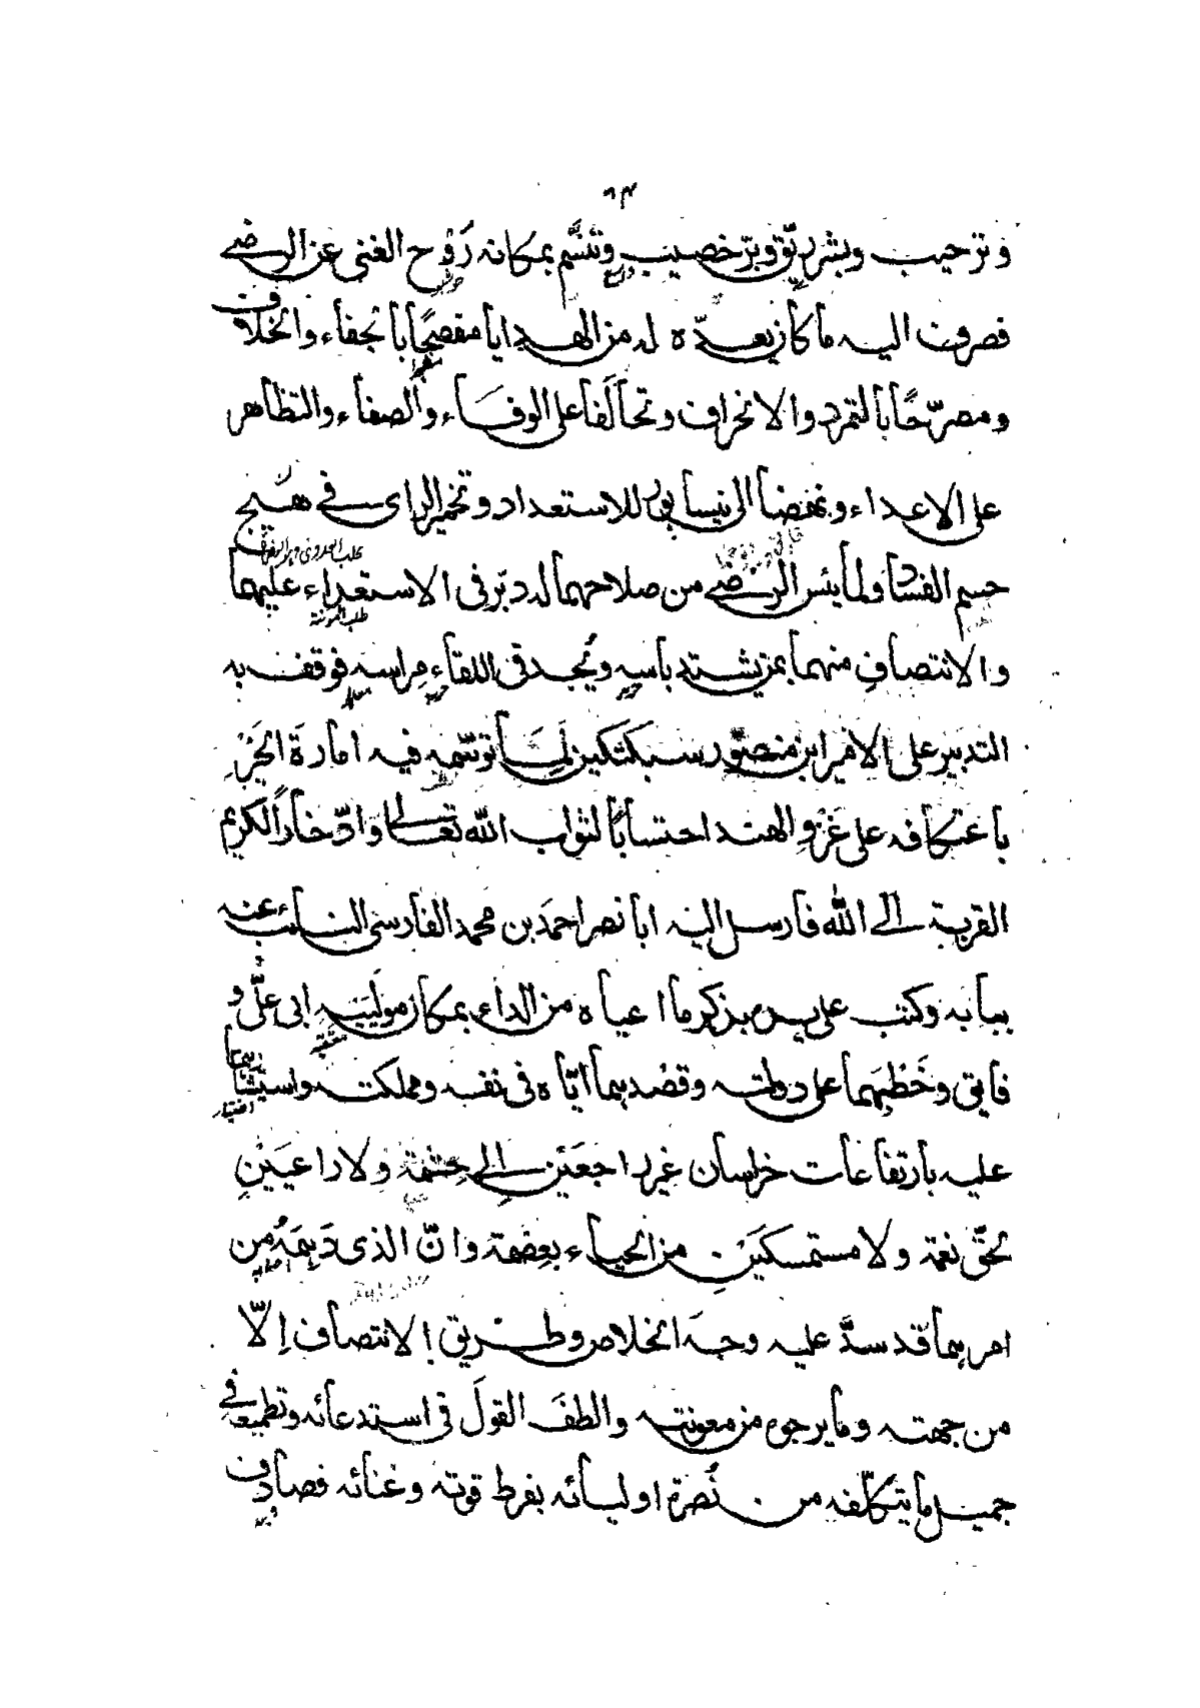 ٦٣
وترحيب وبشر ربق وبرّ خصيب وتنسّم بمكانه رَوْح الغنى عن الرضى
فصرف اليه ما كان يعدّه له من الهدايا مفصحًا بالجفاء والخلاف
ومصرّحًا بالتمرد والانحراف وتحالفا على الوفاء والصفاء والتظاهر
على الاعداء ونهضا الى نيسابور للاستعداد وتخمير الراى فى
حسم الفساد ولما يئس الرضى من صلاحهما له دبّر فى الاستعداء عليهما
والانتصاف منهما بمن يشتد باسه ويُجد فى اللقاء مِراسه فوقف به
التدبير على الامير ابى منصور سبكتكين لِما توسّمه فيه امارة الخير
باعتكافه على غَزْوِ الهند احتسابًا لثواب الله تعالى وادّخارًا لكريم
القربة الى الله فارسل اليه ابا نصر احمد بن محمد الفارسى النائب عنه
ببابه وكتب على يده بذكر ما اعياه من الداء بمكان مولَييه ابى علىّ و
فايق وخَطْبِهما على دولته وقصدهما ايّاه فى نفسه ومملكته واستيثارهما
عليه بارتفاعات خراسان غير راجعَيْن الى حِشمة ولا راعيَيْنِ
لحقّ نعمة ولا مستمسكَيْن من الحياء بعِصمة وانّ الذى دَهِمَهُ من
امرهما قد سدَّ عليه وجهَ الخلاص وطريق الانتصاف إلّا
من جهته وما يرجوه من معونته والطفَ القولَ فى استدعائه وتطميعه فى
جميل ما يتكلّفه من نُصرة اوليائه بفرط قوته وغنائه فصادف